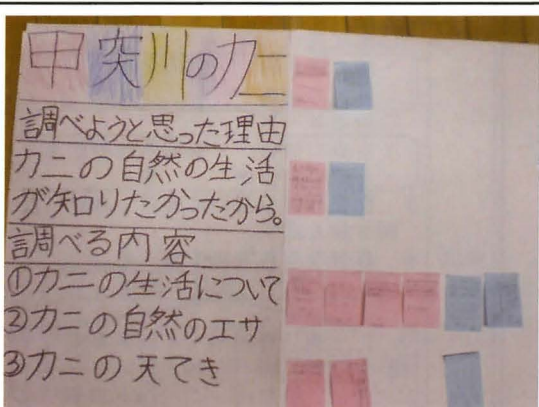 甲突川のカニ
調べようと思った理由
カニの自然の生活
が知りたかったから。
調べる内容
①カニの生活について
②カニの自然のエサ
③カニの天てき